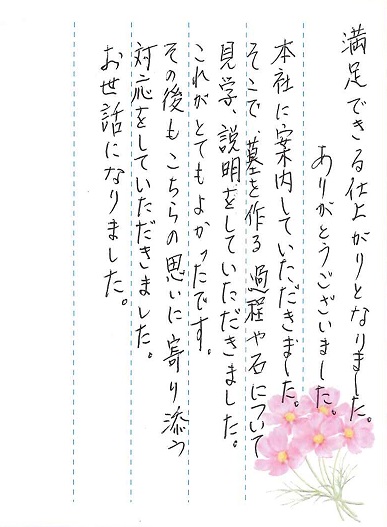 満足できる仕上がりとなりました。
ありがとうございました。
本社に案内していただきました。
そこで、墓を作る過程や石について
見学、説明をしていただきました。
これがとてもよかったです。
その後もこちらの思いに寄り添う
対応をしていただきました。
お世話になりました。